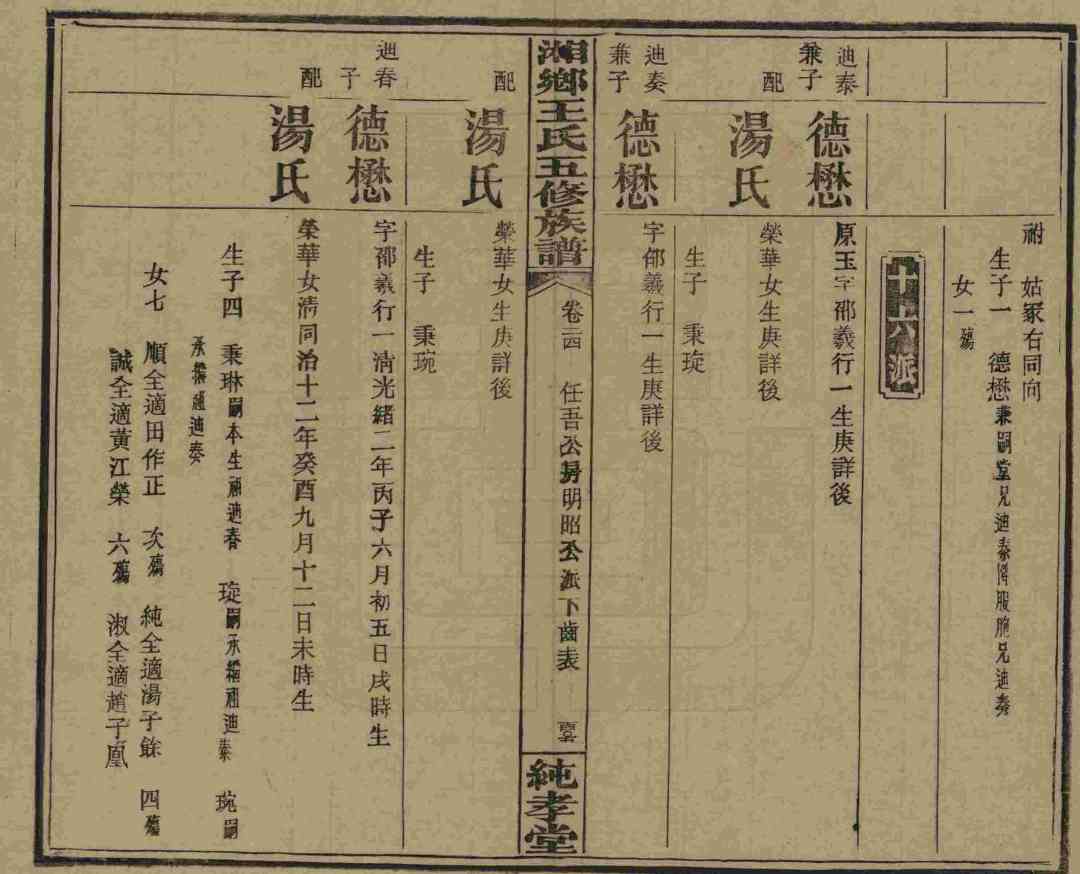 祔 姑冢右同向
生子一 德懋兼嗣堂兄迪泰降服胞兄迪奏
女一殤
十六派
迪泰
兼子
德懋
原玉字邵羲行一生庚詳後
配
湯氏
榮華女生庚詳後
生子 秉琔
迪奏
兼子
德懋
字邵羲行一生庚詳後
湘鄉王氏五修族譜
卷二四 任吾公房明昭公派下齒表
純孝堂
配
湯氏
榮華女生庚詳後
生子 秉琬
迪春
子
德懋
字邵羲行一清光緒二年丙子六月初五日戌時生
配
湯氏
榮華女清同治十二年癸酉九月十二日未時生
生子四 秉琳嗣本生祧迪春 琔嗣承繼祧迪泰 琬嗣
承繼祧迪奏
女七 順全適田作正 次殤 純全適湯子餘 四殤
誠全適黃江榮 六殤 淑全適趙子凰